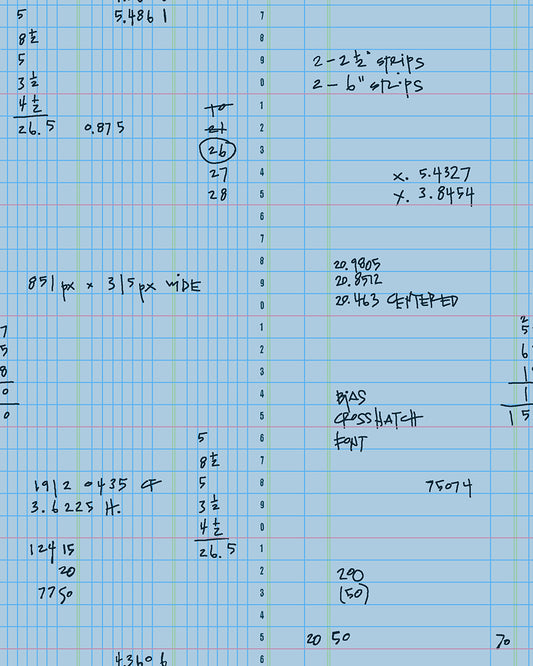 5
5.4861
8 1/2
5
3 1/2
4 1/2
26.5 0.875
2 - 2 1/2" STRIPS
2 - 6" STRIPS
26
27
28
x. 5.4327
y. 3.8454
851 px x 315 px WIDE
20.9805
20.8512
20.463 CENTERED
7
5
8
0
0
2
5
6
1
1
1 5
BIAS
CROSSHATCH
FONT
5
8 1/2
5
3 1/2
4 1/2
26.5
1912 0435 CF
3.6225 H.
75074
12415
20
7750
200
(50)
20 50
70
4.3606
7
8
9
0
1
2
3
4
5
6
7
8
9
0
1
2
3
4
5
6
7
8
9
0
1
2
3
4
5
6